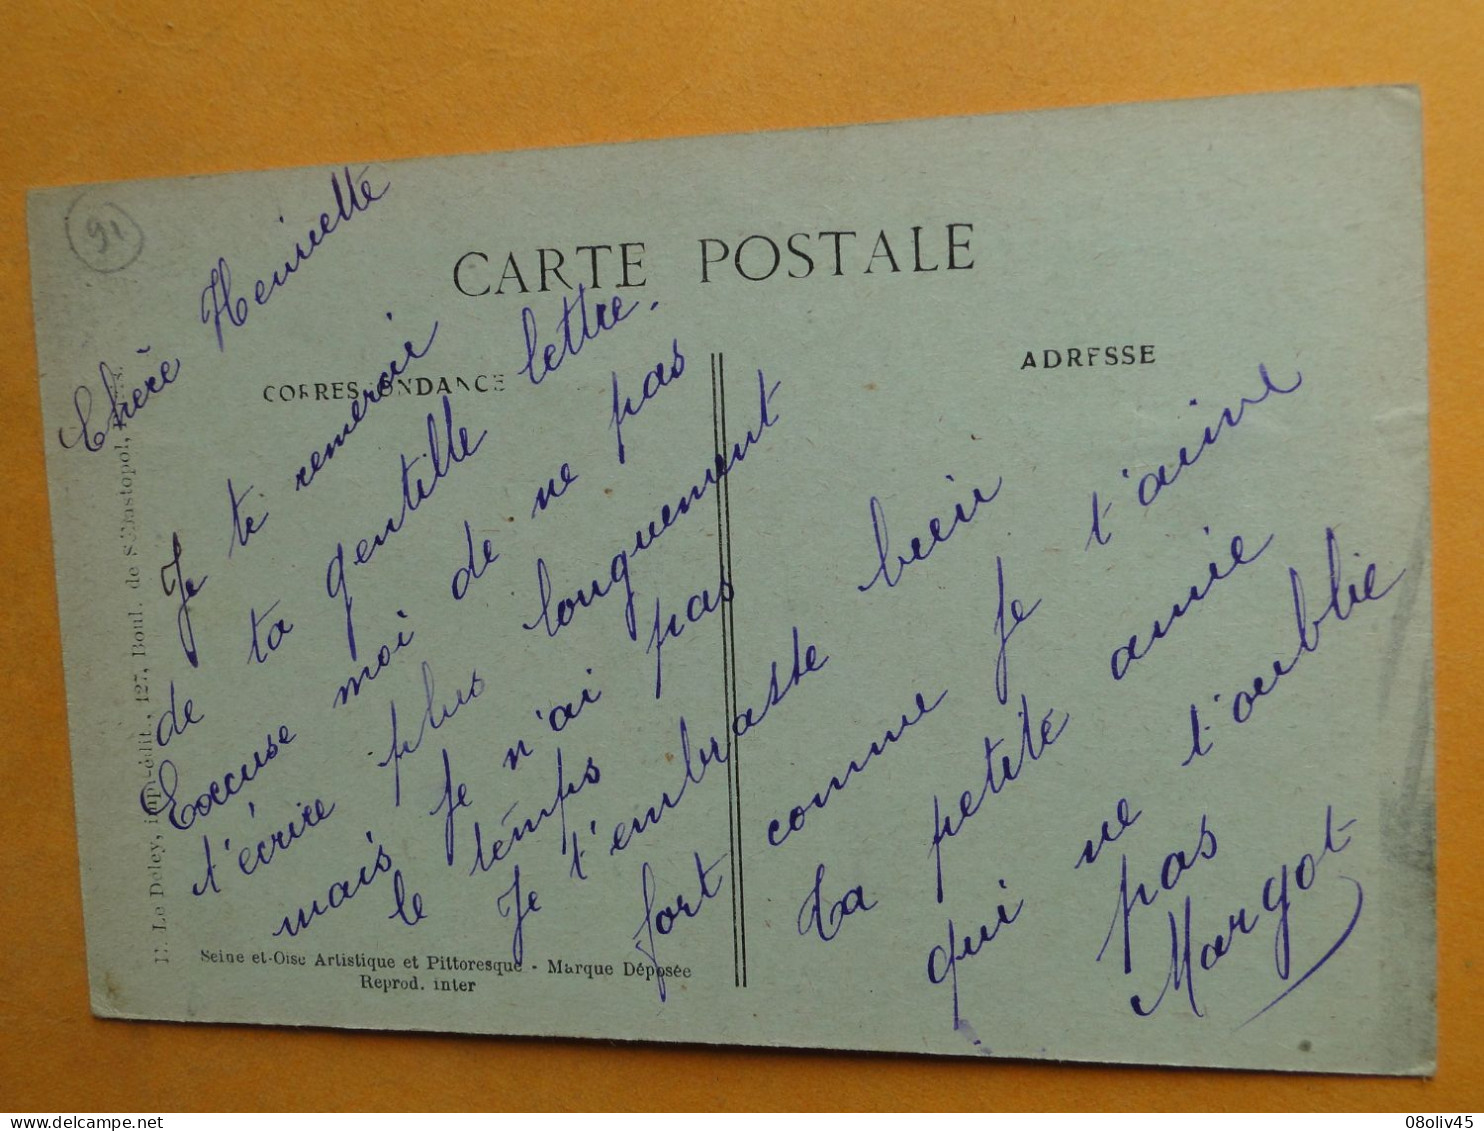 91
CARTE POSTALE
CORRESPONDANCE
ADRESSE
Chère Henriette
Je te remercie
de ta gentille lettre.
Excuse moi de ne pas
t'écrire plus longuement
mais je n'ai pas
le temps
Je t'embrasse bien
fort comme je t'aime
Ta petite amie
qui ne t'oublie
pas
Margot
E. Le Deley, imp.-édit., 127, Boul. de Sébastopol,
Seine et-Oise Artistique et Pittoresque - Marque Déposée
Reprod. inter
08oliv45